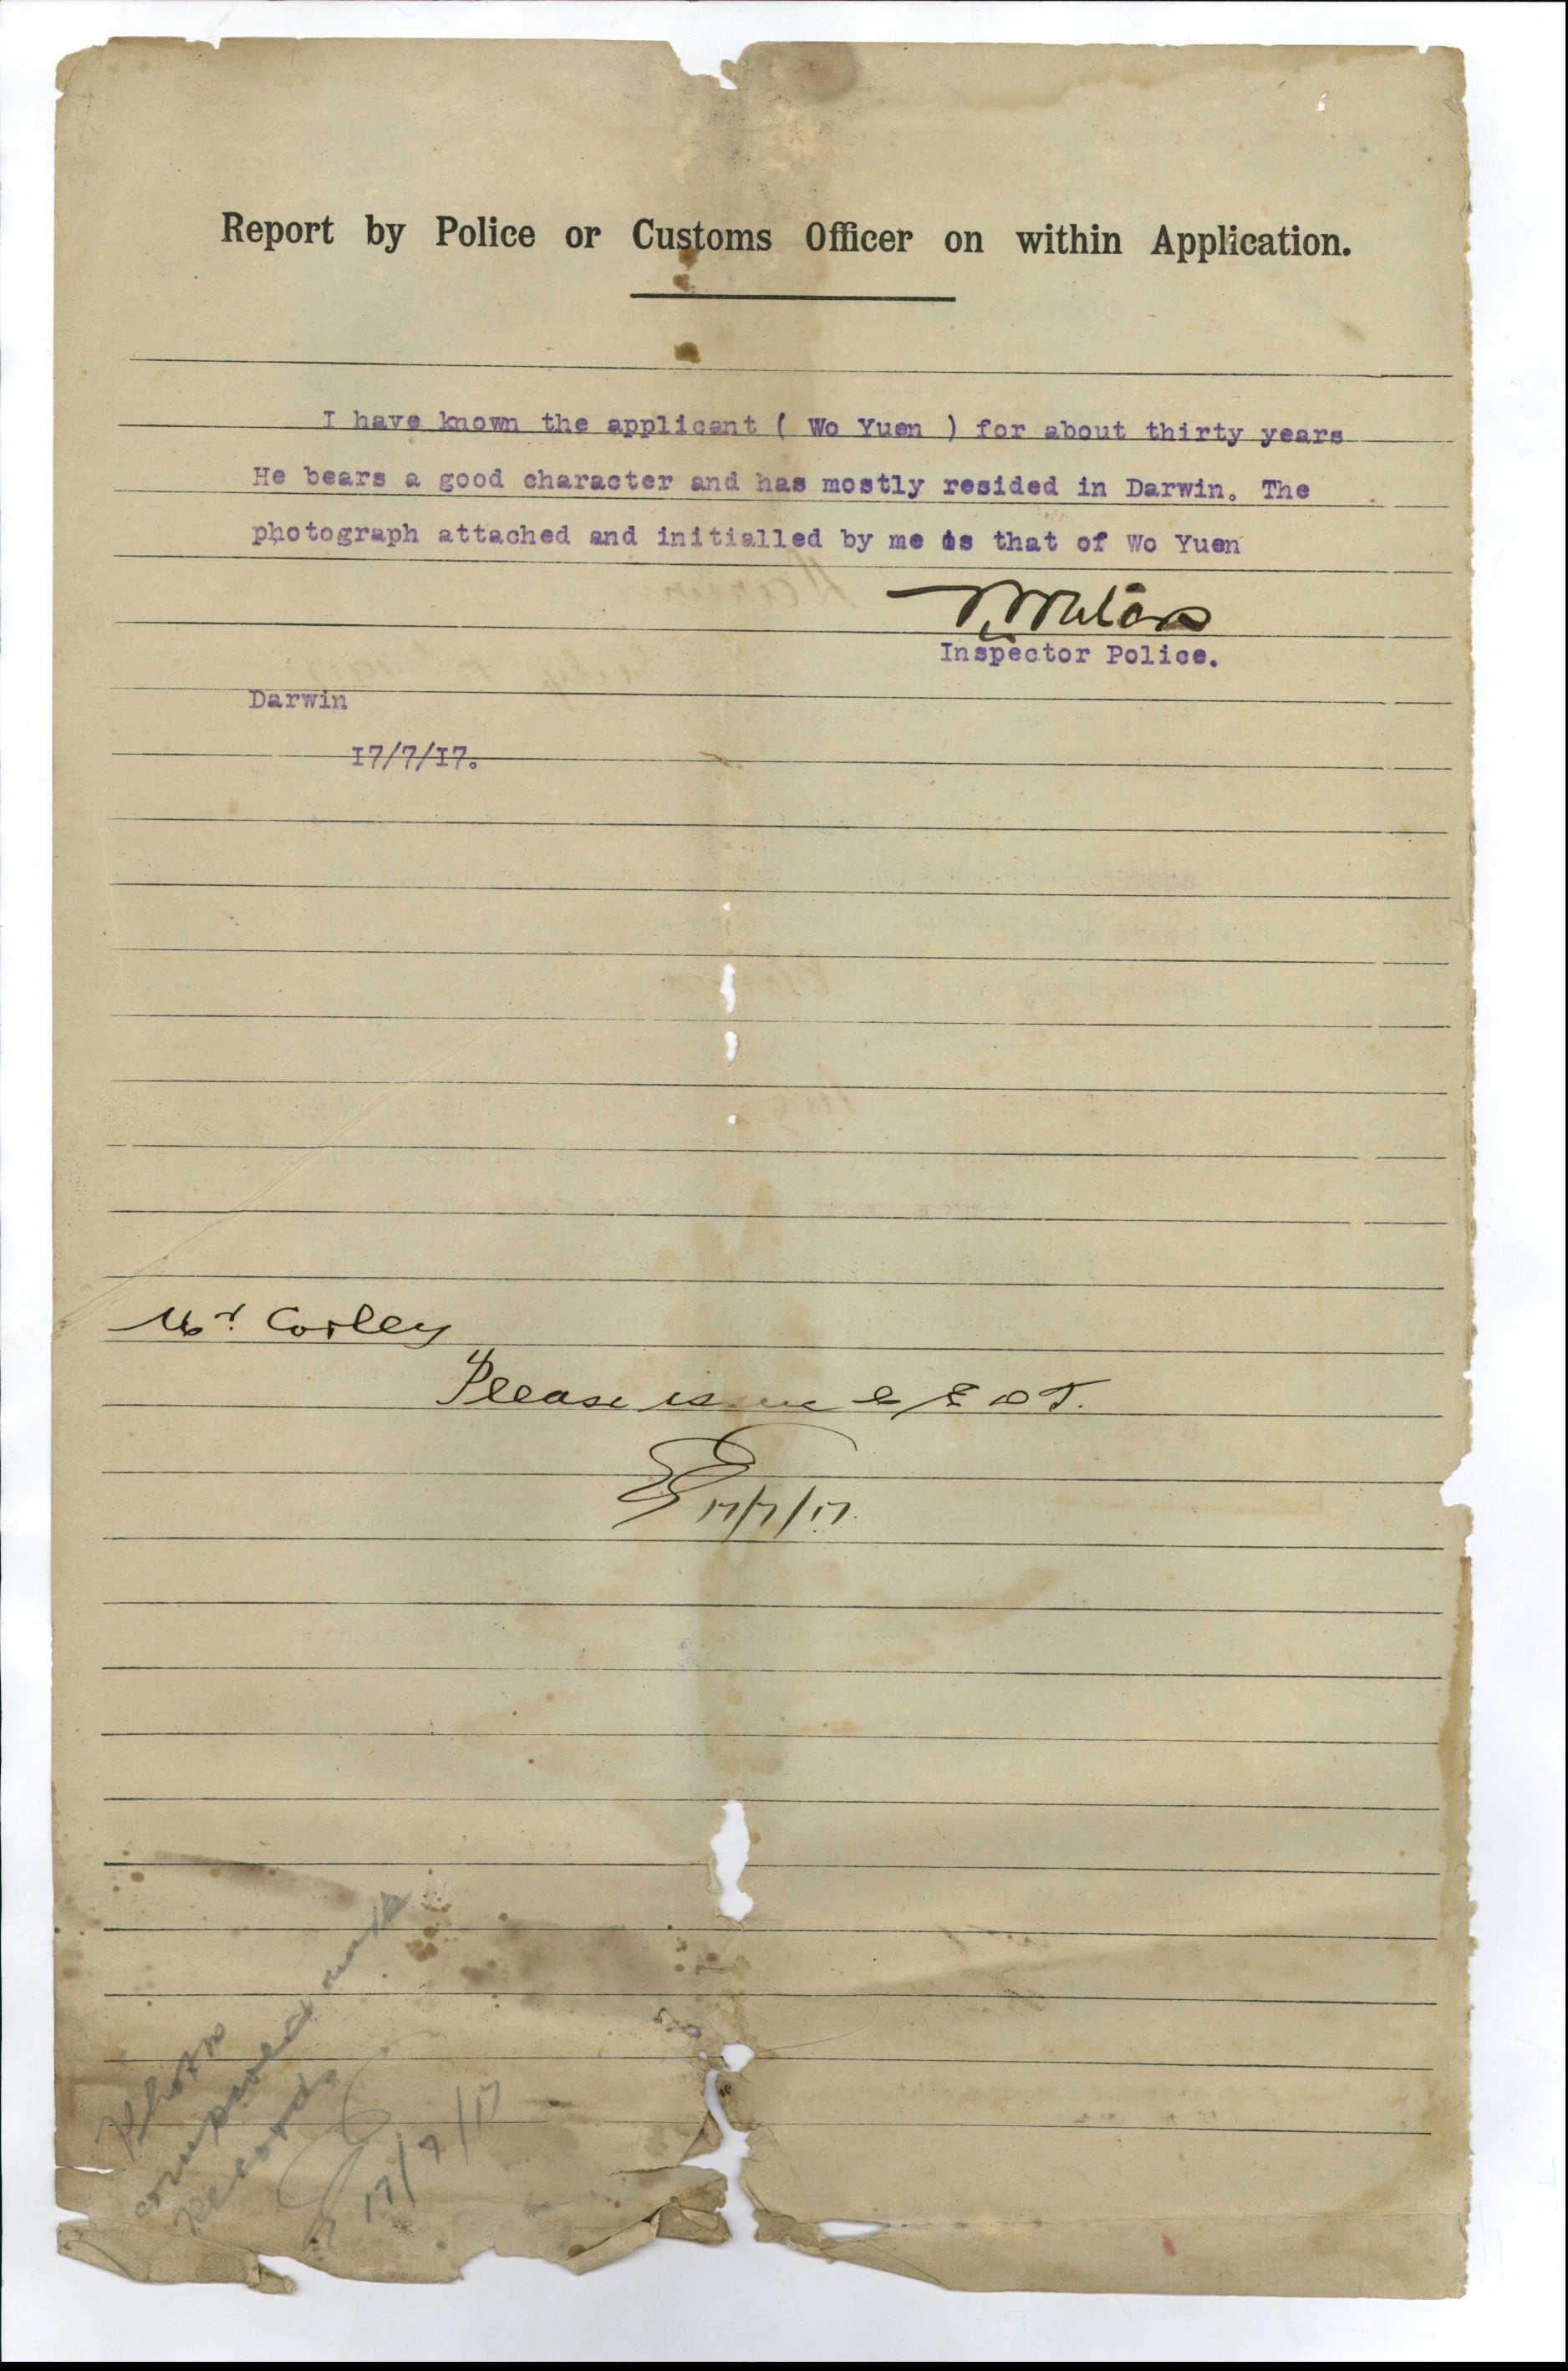 Report by Police or Customs Officer on within Application.
I have known the applicant ( Wo Yuen ) for about thirty years
He bears a good character and has mostly resided in Darwin. The
photograph attached and initialled by me is that of Wo Yuen
Inspector Police.
Darwin
I7/7/I7.
Mr. Corley
Please issue C E D T.
17/7/17.
Photo
compared with
Record.
17/7/17